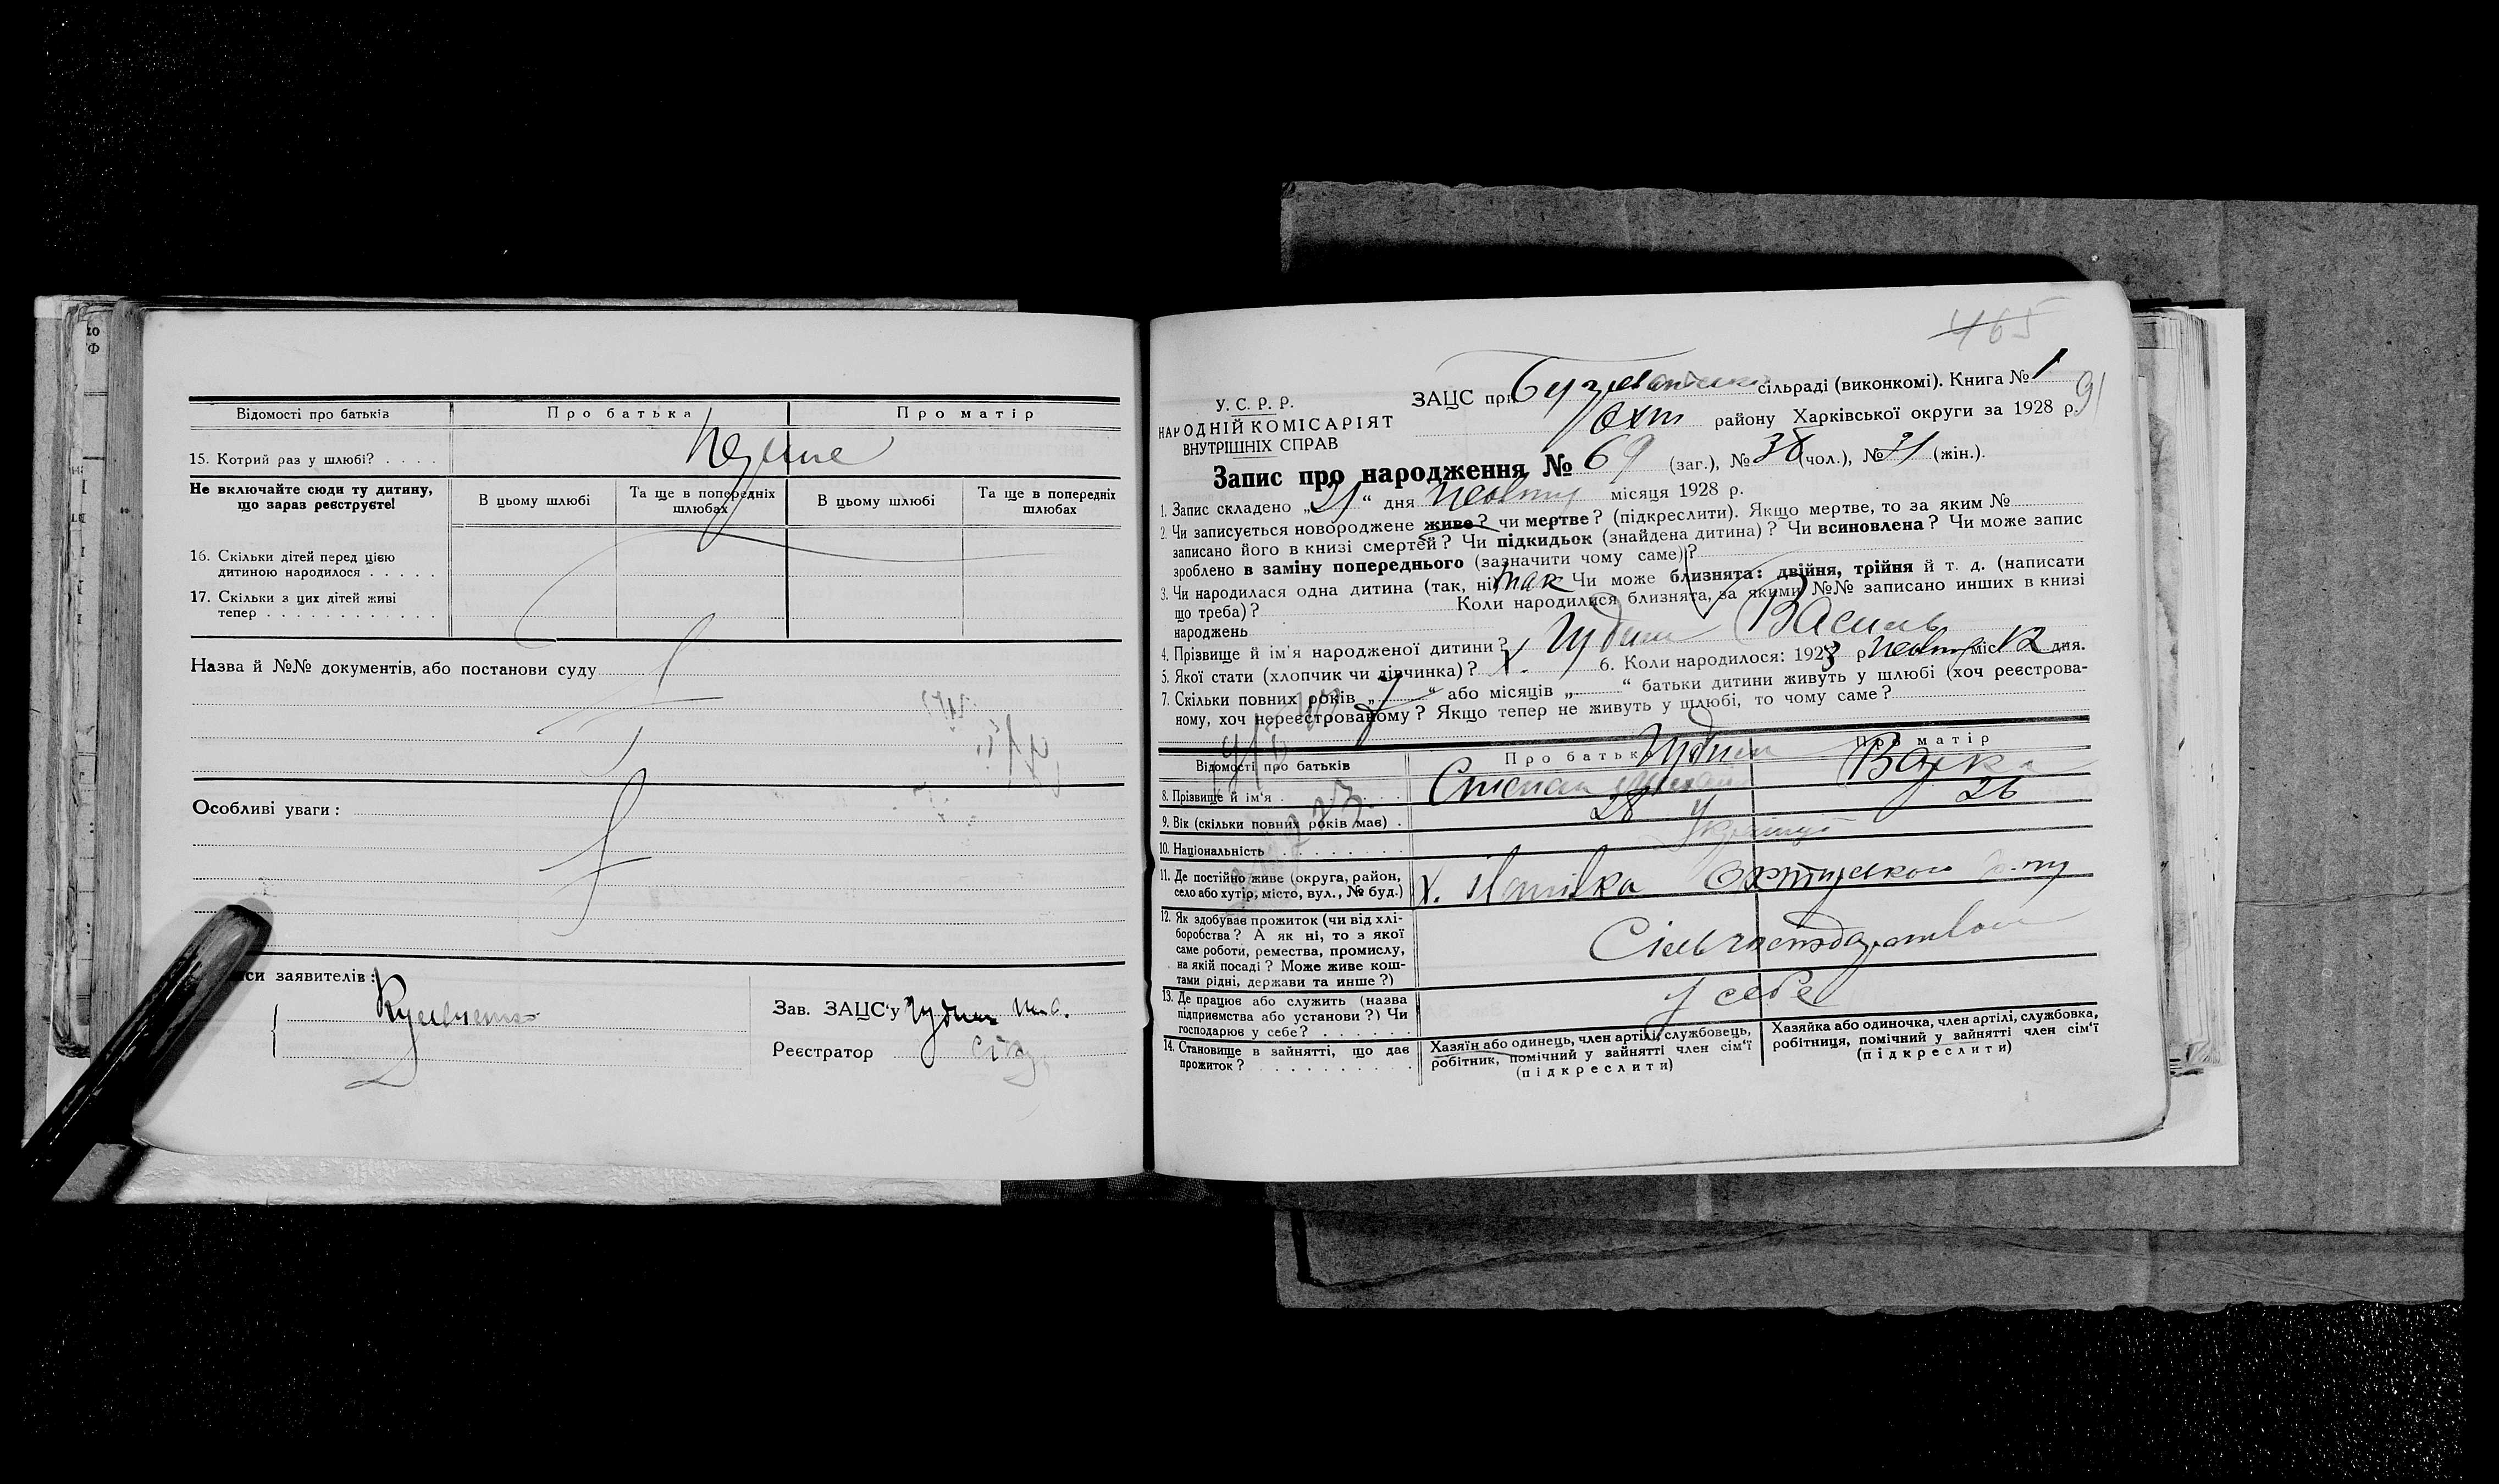 Відомості про батьків
Про батька
Про матір
15. Котрий раз у шлюбі? . . . .
Не включайте сюди ту дитину,
що зараз реєструєте!
В цьому шлюбі
Та ще в попередніх
шлюбах
В цьому шлюбі
Та ще в попередніх
шлюбах
16. Скільки дітей перед цією
дитиною народилося . . . . .
17. Скільки з цих дітей живі
тепер . . . . . . . . . . . .
Назва й №№ документів, або постанови суду
Особливі уваги:
заявителів:
Зав. ЗАЦС'у
Реєстратор
465
91
У. С. Р. Р.
НАРОДНІЙ КОМІСАРІЯТ
ВНУТРІШНІХ СПРАВ
ЗАЦС при сільраді (виконкомі). Книга № 1
Охт району Харківської округи за 1928 р.
Запис про народження № 69 (заг.), № 38 (чол.), № 31 (жін.).
1. Запис складено „21“ дня місяця 1928 р.
2. Чи записується новороджене живе? чи мертве? (підкреслити). Якщо мертве, то за яким №
записано його в книзі смертей? Чи підкидьок (знайдена дитина)? Чи всиновлена? Чи може запис
зроблено в заміну попереднього (зазначити чому саме)?
3. Чи народилася одна дитина (так, ні) так Чи може близнята: двійня, трійня й т. д. (написати
що треба)? Коли народилися близнята, за якими №№ записано инших в книзі
народжень
4. Прізвище й ім'я народженої дитини? Чудин Василь
5. Якої стати (хлопчик чи дівчинка)? х. 6. Коли народилося: 1928 р. міс 12 дня.
7. Скільки повних років „7“ або місяців „ “ батьки дитини живуть у шлюбі (хоч реєстрова-
ному, хоч нереєстрованому? Якщо тепер не живуть у шлюбі, то чому саме?
Відомості про батьків
Про батька
Про матір
8. Прізвище й ім'я . Чудин Степан Варка
9. Вік (скільки повних років має) . 28 26
10. Національність . . . . . . . . Українці
11. Де постійно живе (округа, район,
село або хутір, місто, вул., № буд.)
х.
12. Як здобуває прожиток (чи від хлі-
боробства? А як ні, то з якої
саме роботи, ремества, промислу,
на якій посаді? Може живе кош-
тами рідні, держави та инше?)
13. Де працює або служить (назва
підприємства або установи?) Чи
господарює у себе? . . . . . .
у себе
14. Становище в зайнятті, що дає
прожиток? . . . . . . . . . .
Хазяїн або одинець, член артілі, службовець,
робітник, помічний у зайнятті член сім'ї
(підкреслити)
Хазяйка або одиночка, член артілі, службовка,
робітниця, помічний у зайнятті член сім'ї
(підкреслити)